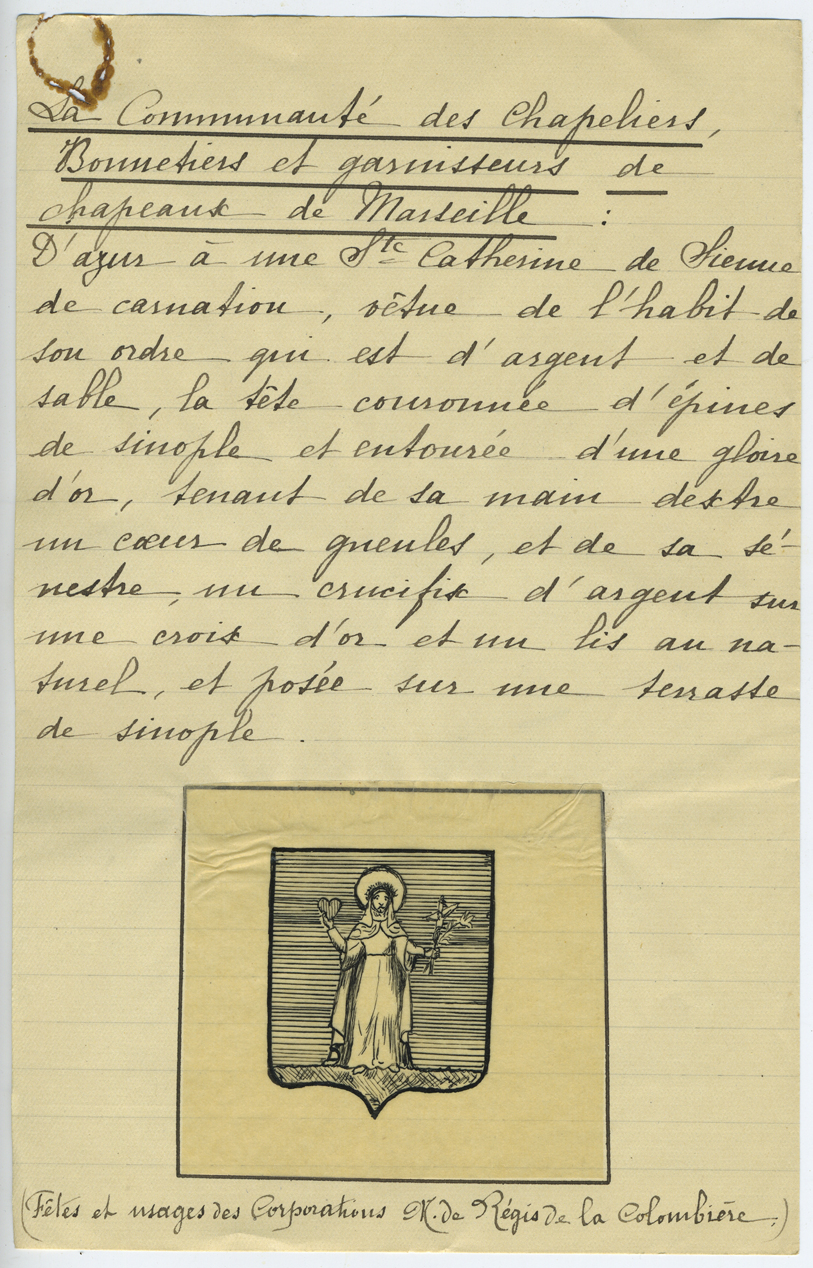 La Communauté des chapeliers,
Bonnetiers et garnisseurs de
chapeaux de Marseille :
D'azur à une Ste Catherine de Sienne
de carnation, vêtue de l'habit de
son ordre qui est d'argent et de
sable, la tête couronnée d'épines
de sinople et entourée d'une gloire
d'or, tenant de sa main dextre
un cœur de gueules, et de sa sé-
nestre, un crucifix d'argent sur
une croix d'or et un lis au na-
turel, et posée sur une terrasse
de sinople.
(Fêtes et usages des Corporations M. de Régis de la Colombière.)